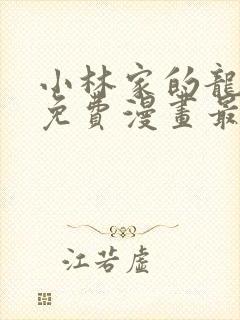 小林家的龍
免費漫畫最
江若虛